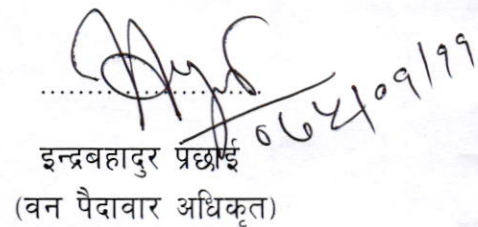 ०७५/०१/११
इन्द्रबहादुर प्रछाई
(वन पैदावार अधिकृत)